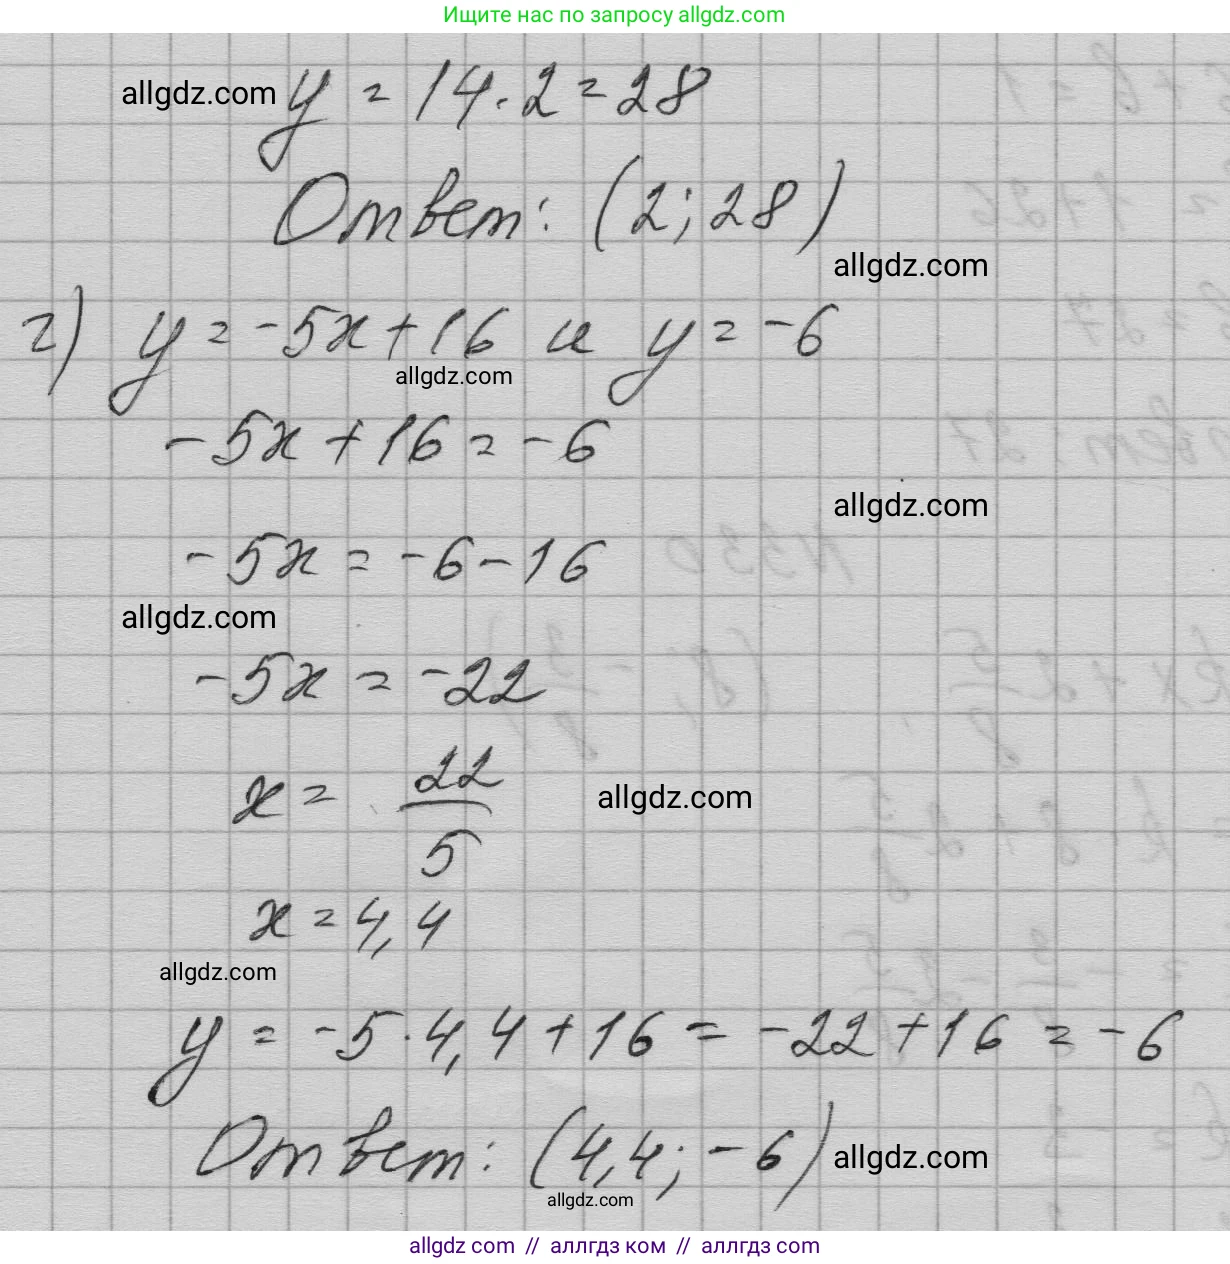 Ищите нас по запросу allgdz.com
allgdz.com
y = 14 · 2 = 28
Ответ: (2; 28)
allgdz.com
г) y = -5x + 16 и y = -6
allgdz.com
-5x + 16 = -6
allgdz.com
-5x = -6 - 16
allgdz.com
-5x = -22
x = 22/5
allgdz.com
x = 4,4
allgdz.com
y = -5 · 4,4 + 16 = -22 + 16 = -6
Ответ: (4,4; -6)
allgdz.com
allgdz.com
allgdz com // аллгдз ком // аллгdз com